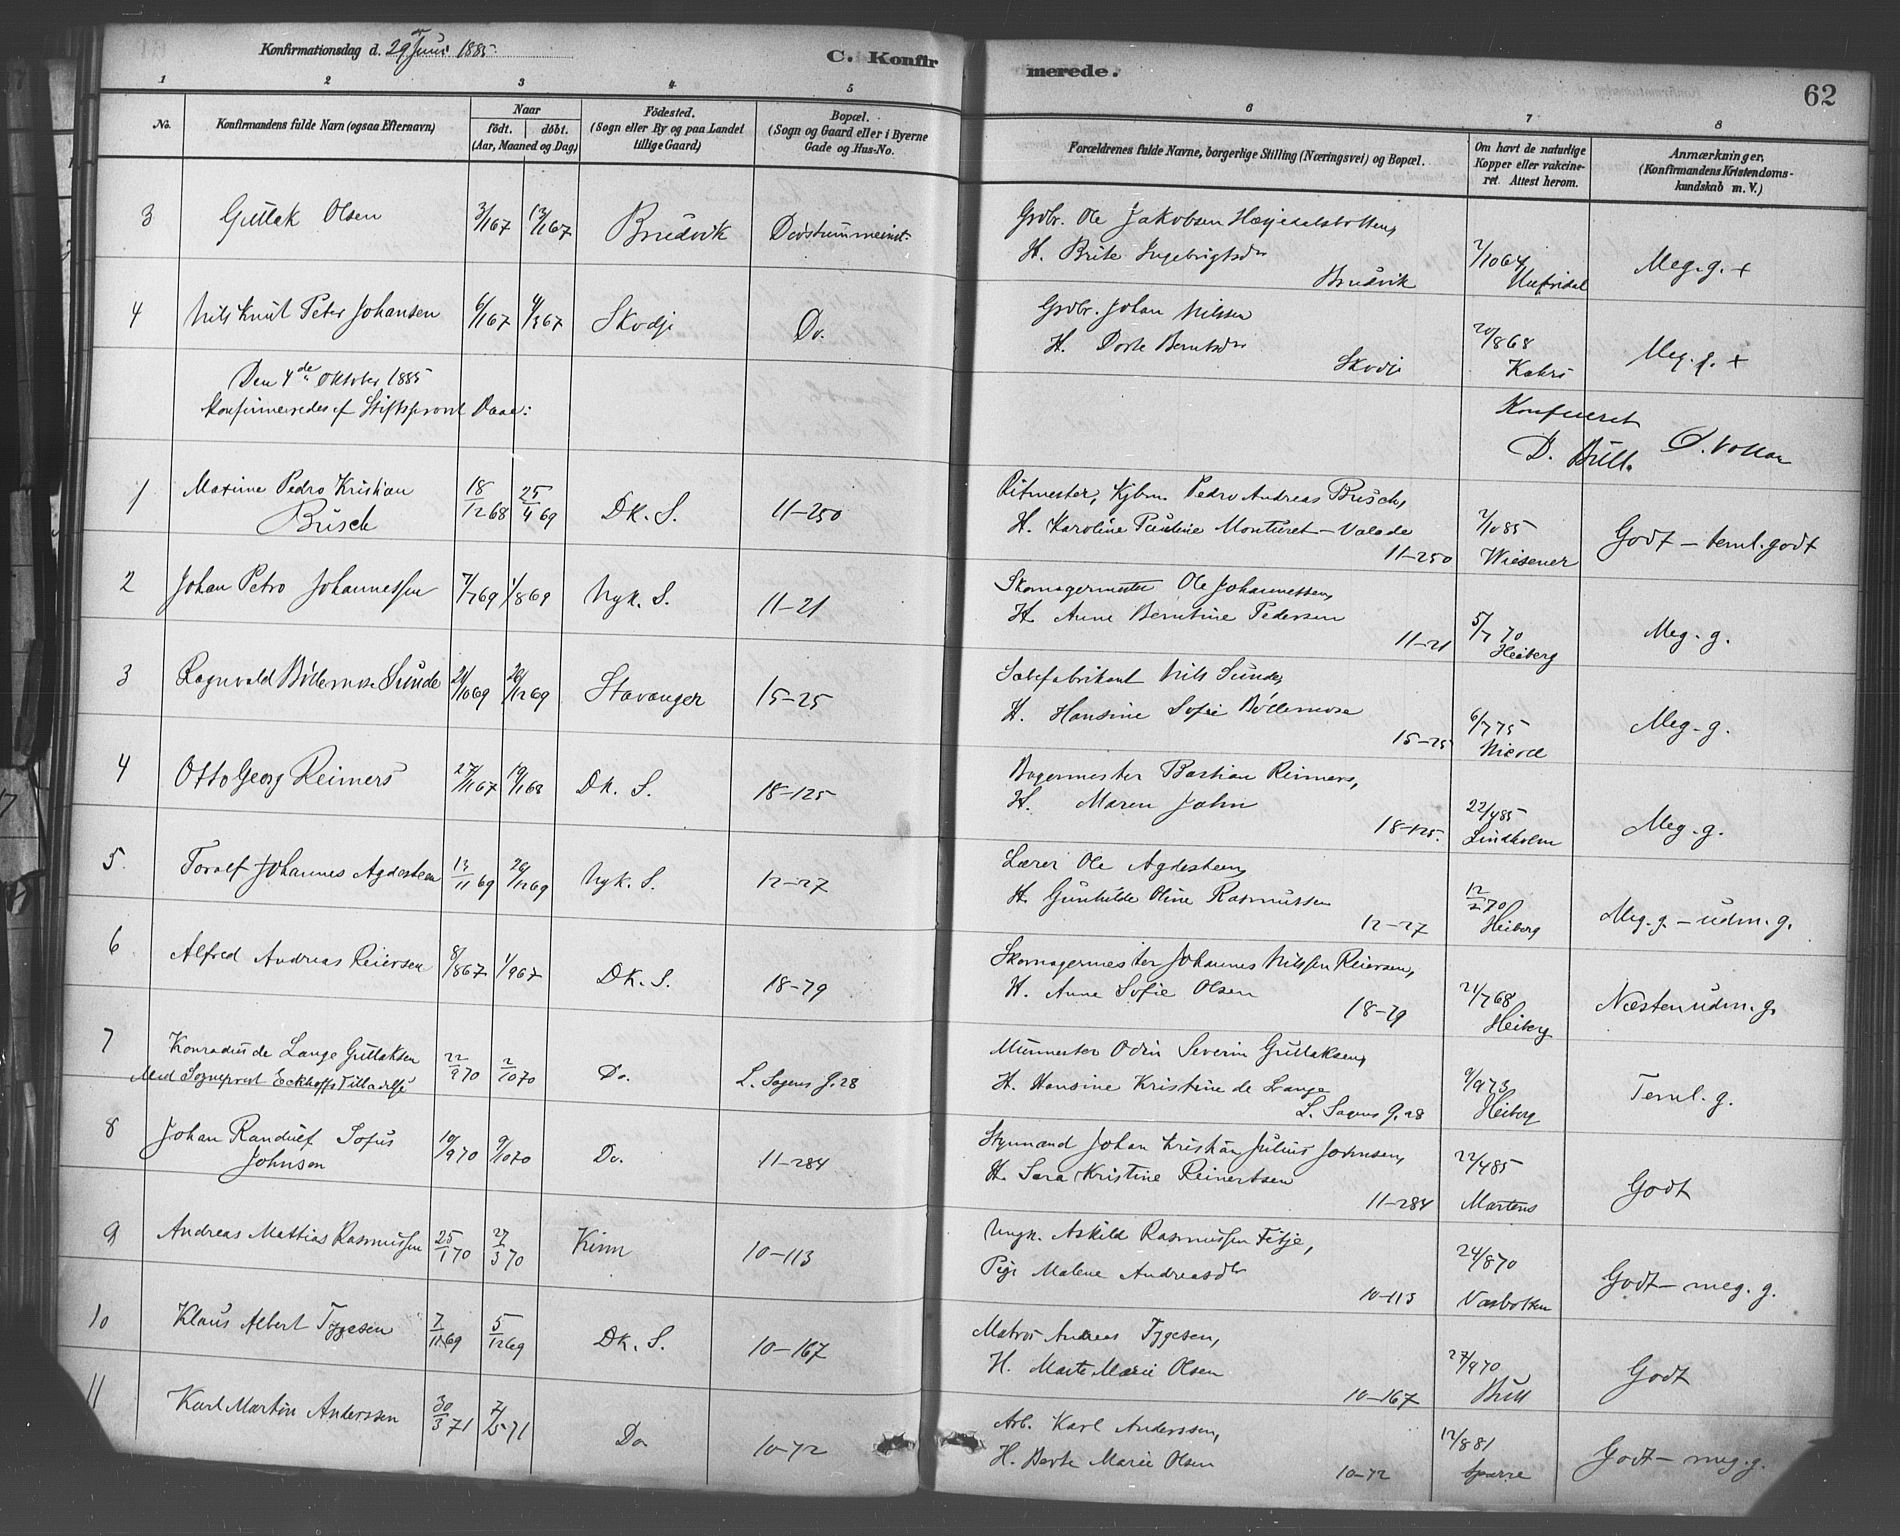 Konfirmationsdag d. 29de Juni 1885.
C. Konfirmerede.
62
1 2 3 4 5 6 7 8
No.
Konfirmandens fulde Navn (ogsaa Efternavn)
Naar
födt. döbt.
(Aar, Maaned og Dag)
Födested.
(Sogn eller By og paa Landet
tillige Gaard)
Bopæl.
(Sogn og Gaard eller i Byerne
Gade og Hus-No.
Forældrenes fulde Navne, borgerlige Stilling (Næringsvei) og Bopæl.
Om havt de naturlige
Kopper eller vakcine-
ret. Attest herom.
Anmærkninger.
(Konfirmandens Kristendoms-
kundskab m. V.)
3 Gullak Olsen 3/1 67 13/1 67 Bruvik Døvstummeinst.
Grdbr. Ole Jakobsen
H. Brite Ingebrigtsdr
Bruvik
7/10 64
Meg. g. +
4 Nils Knut Peter Johansen 6/1 67 4/3 67 Skodje Do.
Grdbr. Johan Nilssen
H. Dorte Berntsdr
Skodje
20/8 68
Meg. g. +
Den 4de Oktober 1885
konfirmeredes af Stiftsprovst Daae:
Konfereret
D. Bull.
1 Maxime Pedro Kristian
Busch 18/12 68 25/4 69 Dk. S. 11-250
Ritmester, Kjbm. Pedro Andreas Busch,
H. Karoline Pauline Monturet-Valade
11-250
7/10 85
Wiesener
Godt - teml. godt
2 Johan Petro Johannessen 7/7 69 1/8 69 Nyk. S. 11-21
Skomagermester Ole Johannessen,
H. Anne Berntine Pedersen
11-21
5/7 70
Heiberg
Meg. g.
3 Ragnvald Böllemose Sunde 21/10 69 26/12 69 Stavanger 15-25
Sæbefabrikant Nils Sunde,
H. Hansine Sofie Böllemose
15-25
6/7 75
Meg. g.
4 Otto Georg Reimers 27/11 67 19/1 68 Dk. S. 18-125
Bagermester Bastian Reimers,
H. Maren Jahn
18-125.
22/4 85
Lindholm
Meg. g.
5. Toralf Johannes Agdestein 13/11 69 26/12 69 Nyk. S. 12-27
Lærer Ole Agdestein,
H. Gunhilde Oline Rasmussen
12-27
12/2 70
Heiberg
Meg. g. - udm. g.
6 Alfred Andreas Reiersen 8/8 67 1/9 67 Dk. S. 18-79
Skomagermester Johannes Nilssen Reiersen,
H. Anne Sofie Olsen
18-79
21/7 68
Heiberg
Næsten udm. g.
7 Konradus de Lange Gullaksen 22/9 70 2/10 70 Do. L. Sagens G. 28
Med Sognepr. Eckhoffs Tilladelse
Murmester Odin Severin Gullaksen,
H. Hansine Kristine de Lange
L. Sagens G. 28
9/9 73
Heiberg
Teml. g.
8 Johan Randulf Sofus
Johnsen 10/9 70 9/10 70 Do. 11-284
Styrmand Johan Kristian Julius Johnsen,
H. Sara Kristine Reinertsen
11-284
22/4 85
Martens
Godt
9 Andreas Mattias Rasmussen 25/1 70 27/3 70 Kinn 10-113
Ungk. Askild Rasmussen Fitje,
Pige Malene Andreasdr
10-113
24/8 70
Godt - meg. g.
10 Klaus Albert Tygesen 7/11 69 5/12 69 Dk. S. 10-167
Matros Andreas Tygesen,
H. Marte Marie Olsen
10-167
27/9 70
Bull
Godt
11 Karl Martin Anderssen 30/3 71 7/5 71 Do 10-72
Arb. Karl Anderssen,
H. Berte Marie Olsen
10-72
12/8 81
Godt - meg. g.